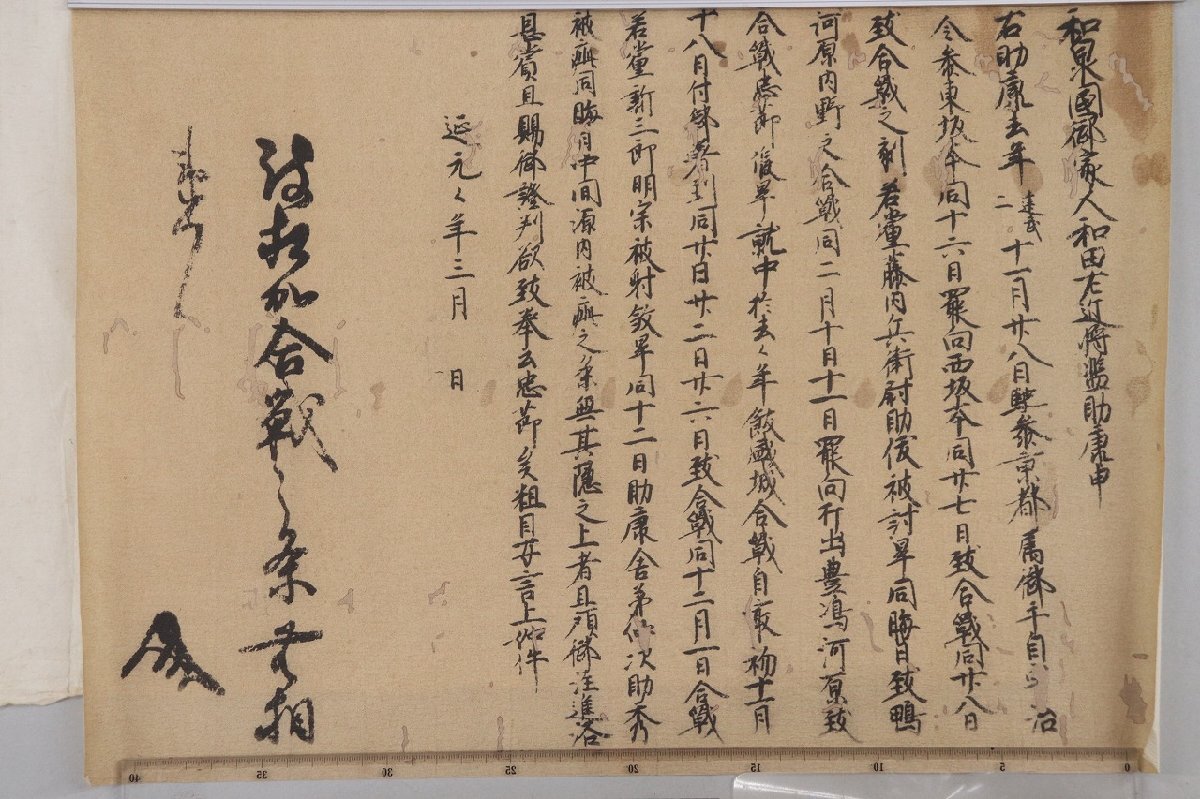 和泉國御家人和田左近将監助康申
右助康去年建武二十一月廿八日馳参京都属御手自宇治
令参東坂本同十六日罷向西坂本同廿七日致合戦同廿八日
致合戦之刻若黨藤内兵衛尉助俊被討畢同晦日致鴨
河原内野之合戦同二月十日十一日罷向打出豊嶋河原致
合戦忠節復畢就中於去々年飯盛城合戦自最初十一月
十八日付御着到同廿日廿二日廿六日致合戦同十二月一日合戦
若黨新三郎明宗被射㪅畢同十二日助康舎弟弥次助秀
被疵同晦日中間源内被疵之条無其隠之上者且預御注進浴
恩賞且賜御證判欲致奉公忠節矣粗目安言上如件
延元々年三月 日
致軍忠合戦之条無相
違
40 35 30 25 20 15 10 5 0